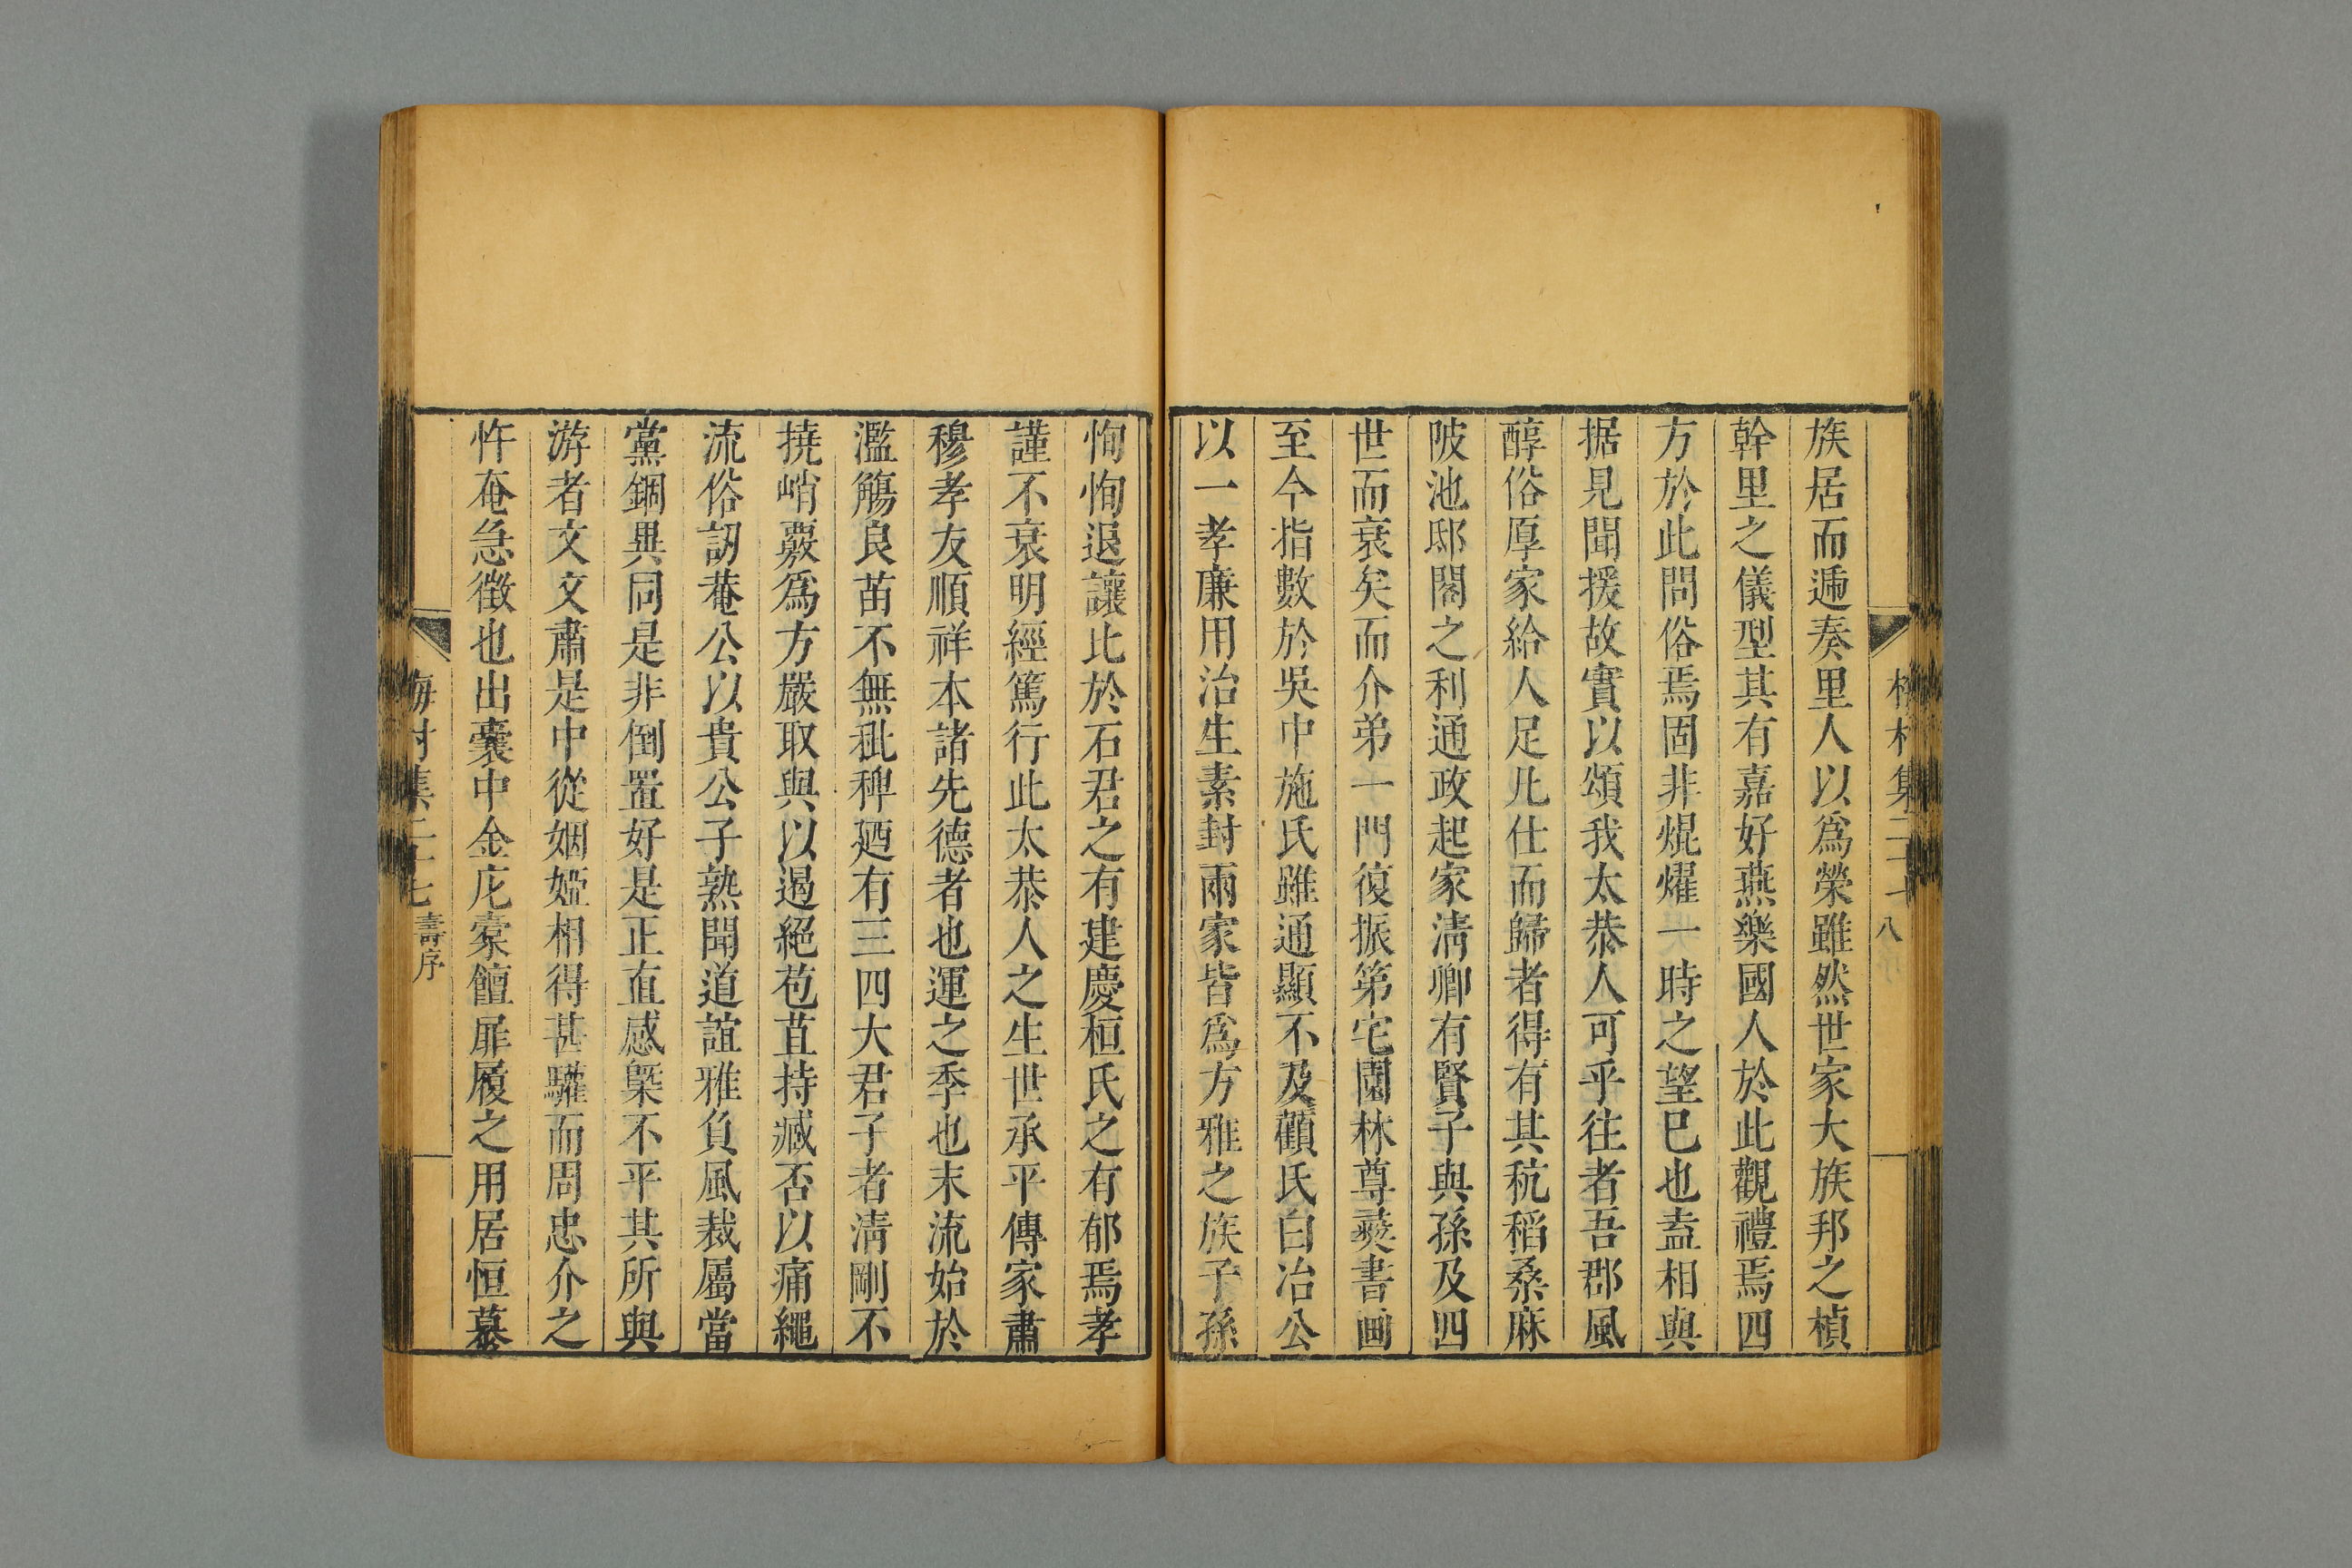 族居而逓奏里人以爲榮雖然世家大族邦之楨
幹里之儀型其有嘉好燕樂國人於此觀禮焉四
方於此問俗焉固非焜燿一時之望巳也盍相與
据見聞援故實以頌我太恭人可乎往者吾郡風
醇俗厚家給人足凡仕而歸者得有其秔稻桑麻
陂池邸閣之利通政起家淸卿有賢子與孫及四
世而衰矣而介弟一門復振第宅園林尊彛書画
至今指數於吳中施氏雖通顯不及顧氏白冶公
以一孝廉用治生素封兩家皆爲方雅之族子孫
恂恂退讓比於石君之有建慶桓氏之有郁焉孝
謹不衰明經篤行此太恭人之生世承平傳家肅
穆孝友順祥本諸先德者也運之季也末流始於
濫觴良苗不無秕稗廼有三四大君子者淸剛不
撓峭覈爲方嚴取與以遏絕苞苴持臧否以痛繩
流俗訒菴公以貴公子熟聞道誼雅負風裁屬當
黨錮異同是非倒置好是正直感槩不平其所與
游者文文肅是中從姻婭相得甚驩而周忠介之
忤奄急徵也出橐中金庀槖饘扉履之用居恒慕
梅村集二十七 壽序
八